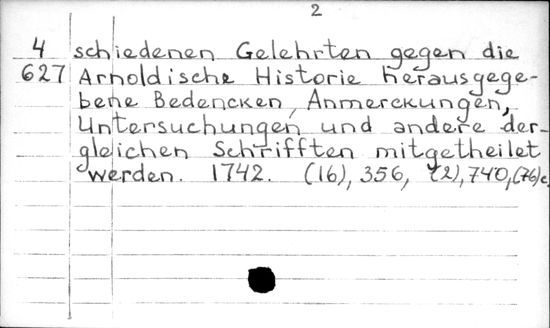 2
4 schiedenen Gelehrten gegen die
627 Arnoldische Historie herausgege-
bene Bedencken, Anmerckungen,
Untersuchungen und andere der-
gleichen Schrifften mitgetheilet
werden. 1742. (16), 356, (2), 740, (76) c.